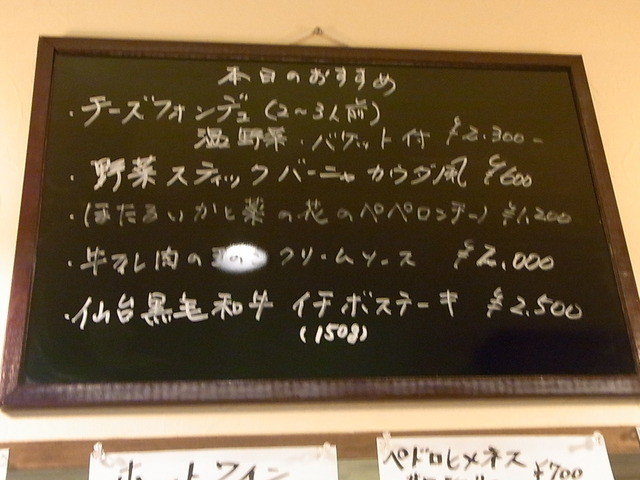 本日のおすすめ
・チーズフォンデュ(2〜3人前)
温野菜・バケット付 ¥2.300-
・野菜スティックバーニャカウダ風 ¥600
・ほたるいかと菜の花のペペロンチーノ ¥1,200
・牛ヒレ肉の クリームソース ¥2,000
・仙台黒毛和牛 イチボステーキ ¥2.500
(150g)
ホットワイン
ペドロヒメネス
¥700